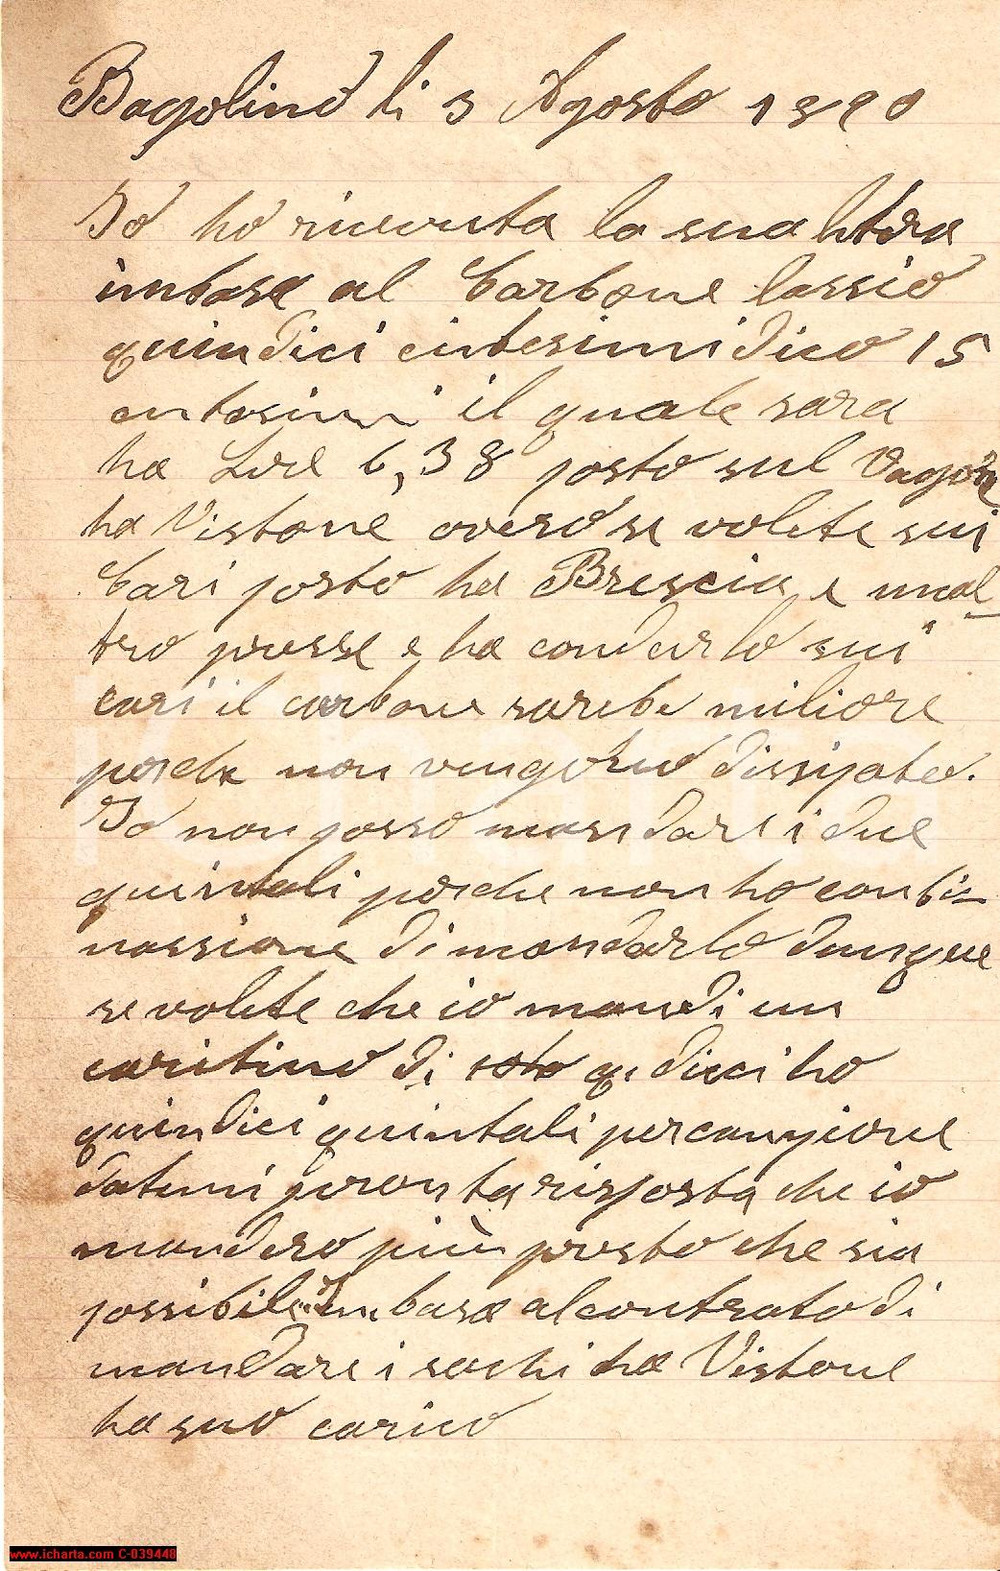 Bagolino li 3 Agosto 1890
Io ho riceuuta la sua letera
inbase al Carbone lassio
quindici cintesimi dico 15
centesimi il quale sara
ha Lire 6,38 posto sul Vagone
ha Vistone overo se volete sui
Cari posto ha Brescia e unal-
tro presse e ha condurlo sui
cari il carbone sarebe miliore
perche non vengono dissipato.
Io non posso mandare i due
quintali perche non ho conbi-
nassione di mandarlo dunque
se volete che io mandi un
caritino di dieci ho
quindici quintali per canpione
datemi pronta risposta che io
mandero più presto che sia
possibile in base al contrato di
mandare i sachi ha Vistone
ha suo carico
www.icharta.com C-039448